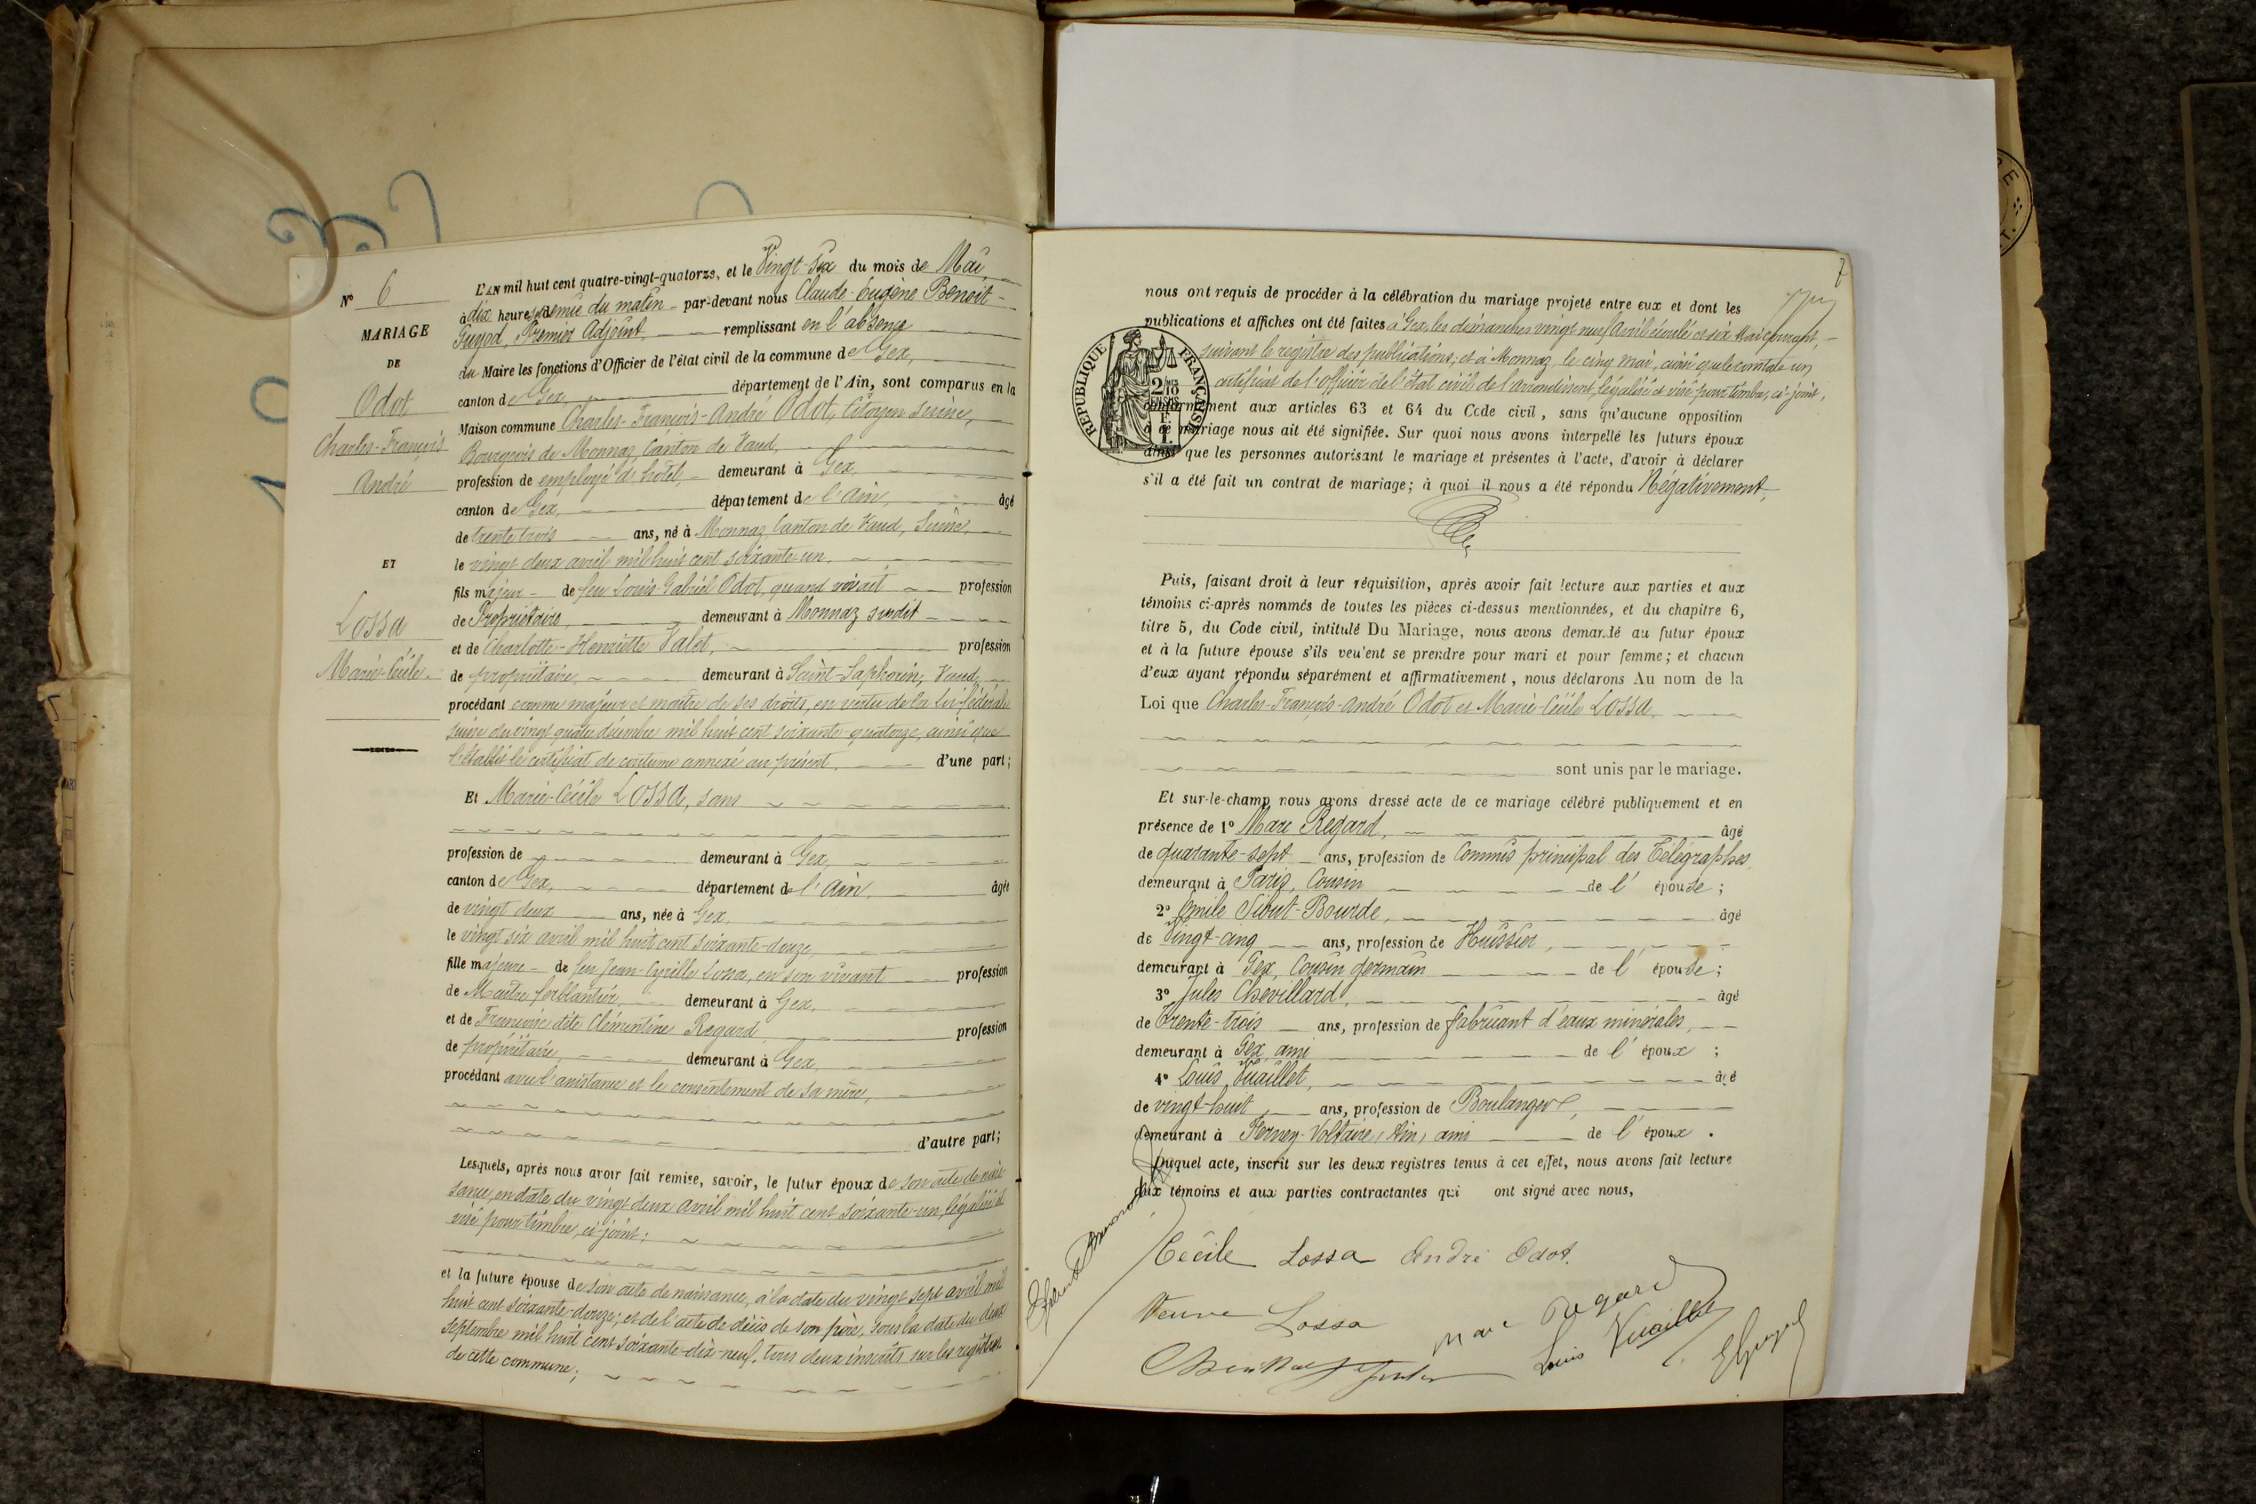 N° 6
MARIAGE
DE
Odot
Charles-François
André
ET
Lossa
Marie-Cécile.
L'AN mil huit cent quatre-vingt-quatorze, et le Vingt-six du mois de Mai
à dix heures et demie du matin par-devant nous Claude-Eugène Benoit-
Guyod, Premier Adjoint, remplissant en l'absence
du Maire les fonctions d'Officier de l'état civil de la commune de Gex,
canton de Gex, département de l'Ain, sont comparus en la
Maison commune Charles-François-André Odot, Citoyen suisse,
Bourgeois de Monnaz, Canton de Vaud,
profession de employé d'hôtel, demeurant à Gex
canton de Gex, département de l'Ain, âgé
de trente trois ans, né à Monnaz, Canton de Vaud, Suisse,
le vingt deux avril mil huit cent soixante-un,
fils majeur de feu Louis-Gabriel Odot, quand vivait profession
de Propriétaire, demeurant à Monnaz susdit
et de Charlotte-Henriette Valet, profession
de propriétaire, demeurant à Saint-Saphorin, Vaud,
procédant comme majeur et maître de ses droits, en vertu de la loi fédérale
suisse du vingt quatre décembre mil huit cent soixante-quatorze, ainsi que
l'établit le certificat de coutume annexé au présent, d'une part;
Et Marie-Cécile Lossa, sans
profession de demeurant à Gex,
canton de Gex, département de l'Ain, âgée
de vingt deux ans, née à Gex,
le vingt six avril mil huit cent soixante-douze,
fille majeure de feu Jean-Cyrille Lossa, en son vivant profession
de Maître ferblantier, demeurant à Gex,
et de Françoise dite Clémentine Regard, profession
de propriétaire, demeurant à Gex,
procédant avec l'assistance et le consentement de sa mère,
d'autre part;
Lesquels, après nous avoir fait remise, savoir, le futur époux de son acte de nais-
sance, en date du vingt deux avril mil huit cent soixante-un, légalisé et
visé pour timbre, ci-joint;
et la future épouse de son acte de naissance, à la date du vingt sept avril mil
huit cent soixante-douze; et de l'acte de décès de son père, sous la date du deux
septembre mil huit cent soixante-dix-neuf, tous deux inscrits sur les registres
de cette commune;
7
nous ont requis de procéder à la célébration du mariage projeté entre eux et dont les
publications et affiches ont été faites à Gex, les dimanches vingt neuf Avril écoulé et six Mai courant,
suivant le registre des publications; et à Monnaz, le cinq mai, ainsi que le constate un
certificat de l'officier de l'état civil de l'arrondissement, légalisé et visé pour timbre, ci-joint,
RÉPUBLIQUE FRANÇAISE
conformément aux articles 63 et 64 du Code civil, sans qu'aucune opposition
à ce mariage nous ait été signifiée. Sur quoi nous avons interpellé les futurs époux
ainsi que les personnes autorisant le mariage et présentes à l'acte, d'avoir à déclarer
s'il a été fait un contrat de mariage; à quoi il nous a été répondu Négativement,
Puis, faisant droit à leur réquisition, après avoir fait lecture aux parties et aux
témoins ci-après nommés de toutes les pièces ci-dessus mentionnées, et du chapitre 6,
titre 5, du Code civil, intitulé Du Mariage, nous avons demandé au futur époux
et à la future épouse s'ils veulent se prendre pour mari et pour femme; et chacun
d'eux ayant répondu séparément et affirmativement, nous déclarons Au nom de la
Loi que Charles-François-André Odot et Marie-Cécile Lossa
sont unis par le mariage.
Et sur-le-champ nous avons dressé acte de ce mariage célébré publiquement et en
présence de 1° Marc Regard, âgé
de quarante-sept ans, profession de Commis principal des Télégraphes
demeurant à Paris, Cousin de l'épouse;
2° Emile Sibut-Bourde, âgé
de Vingt-cinq ans, profession de Huissier,
demeurant à Gex, Cousin germain de l'épouse;
3° Jules Chevillard, âgé
de Trente-trois ans, profession de fabricant d'eaux minérales,
demeurant à Gex, ami de l'époux;
4° Louis Vuaillet, âgé
de vingt-huit ans, profession de Boulanger,
demeurant à Ferney-Voltaire, Ain, ami de l'époux.
Duquel acte, inscrit sur les deux registres tenus à cet effet, nous avons fait lecture
aux témoins et aux parties contractantes qui ont signé avec nous,
Cécile Lossa André Odot.
Veuve Lossa
Marc Regard
Louis Vuaillet